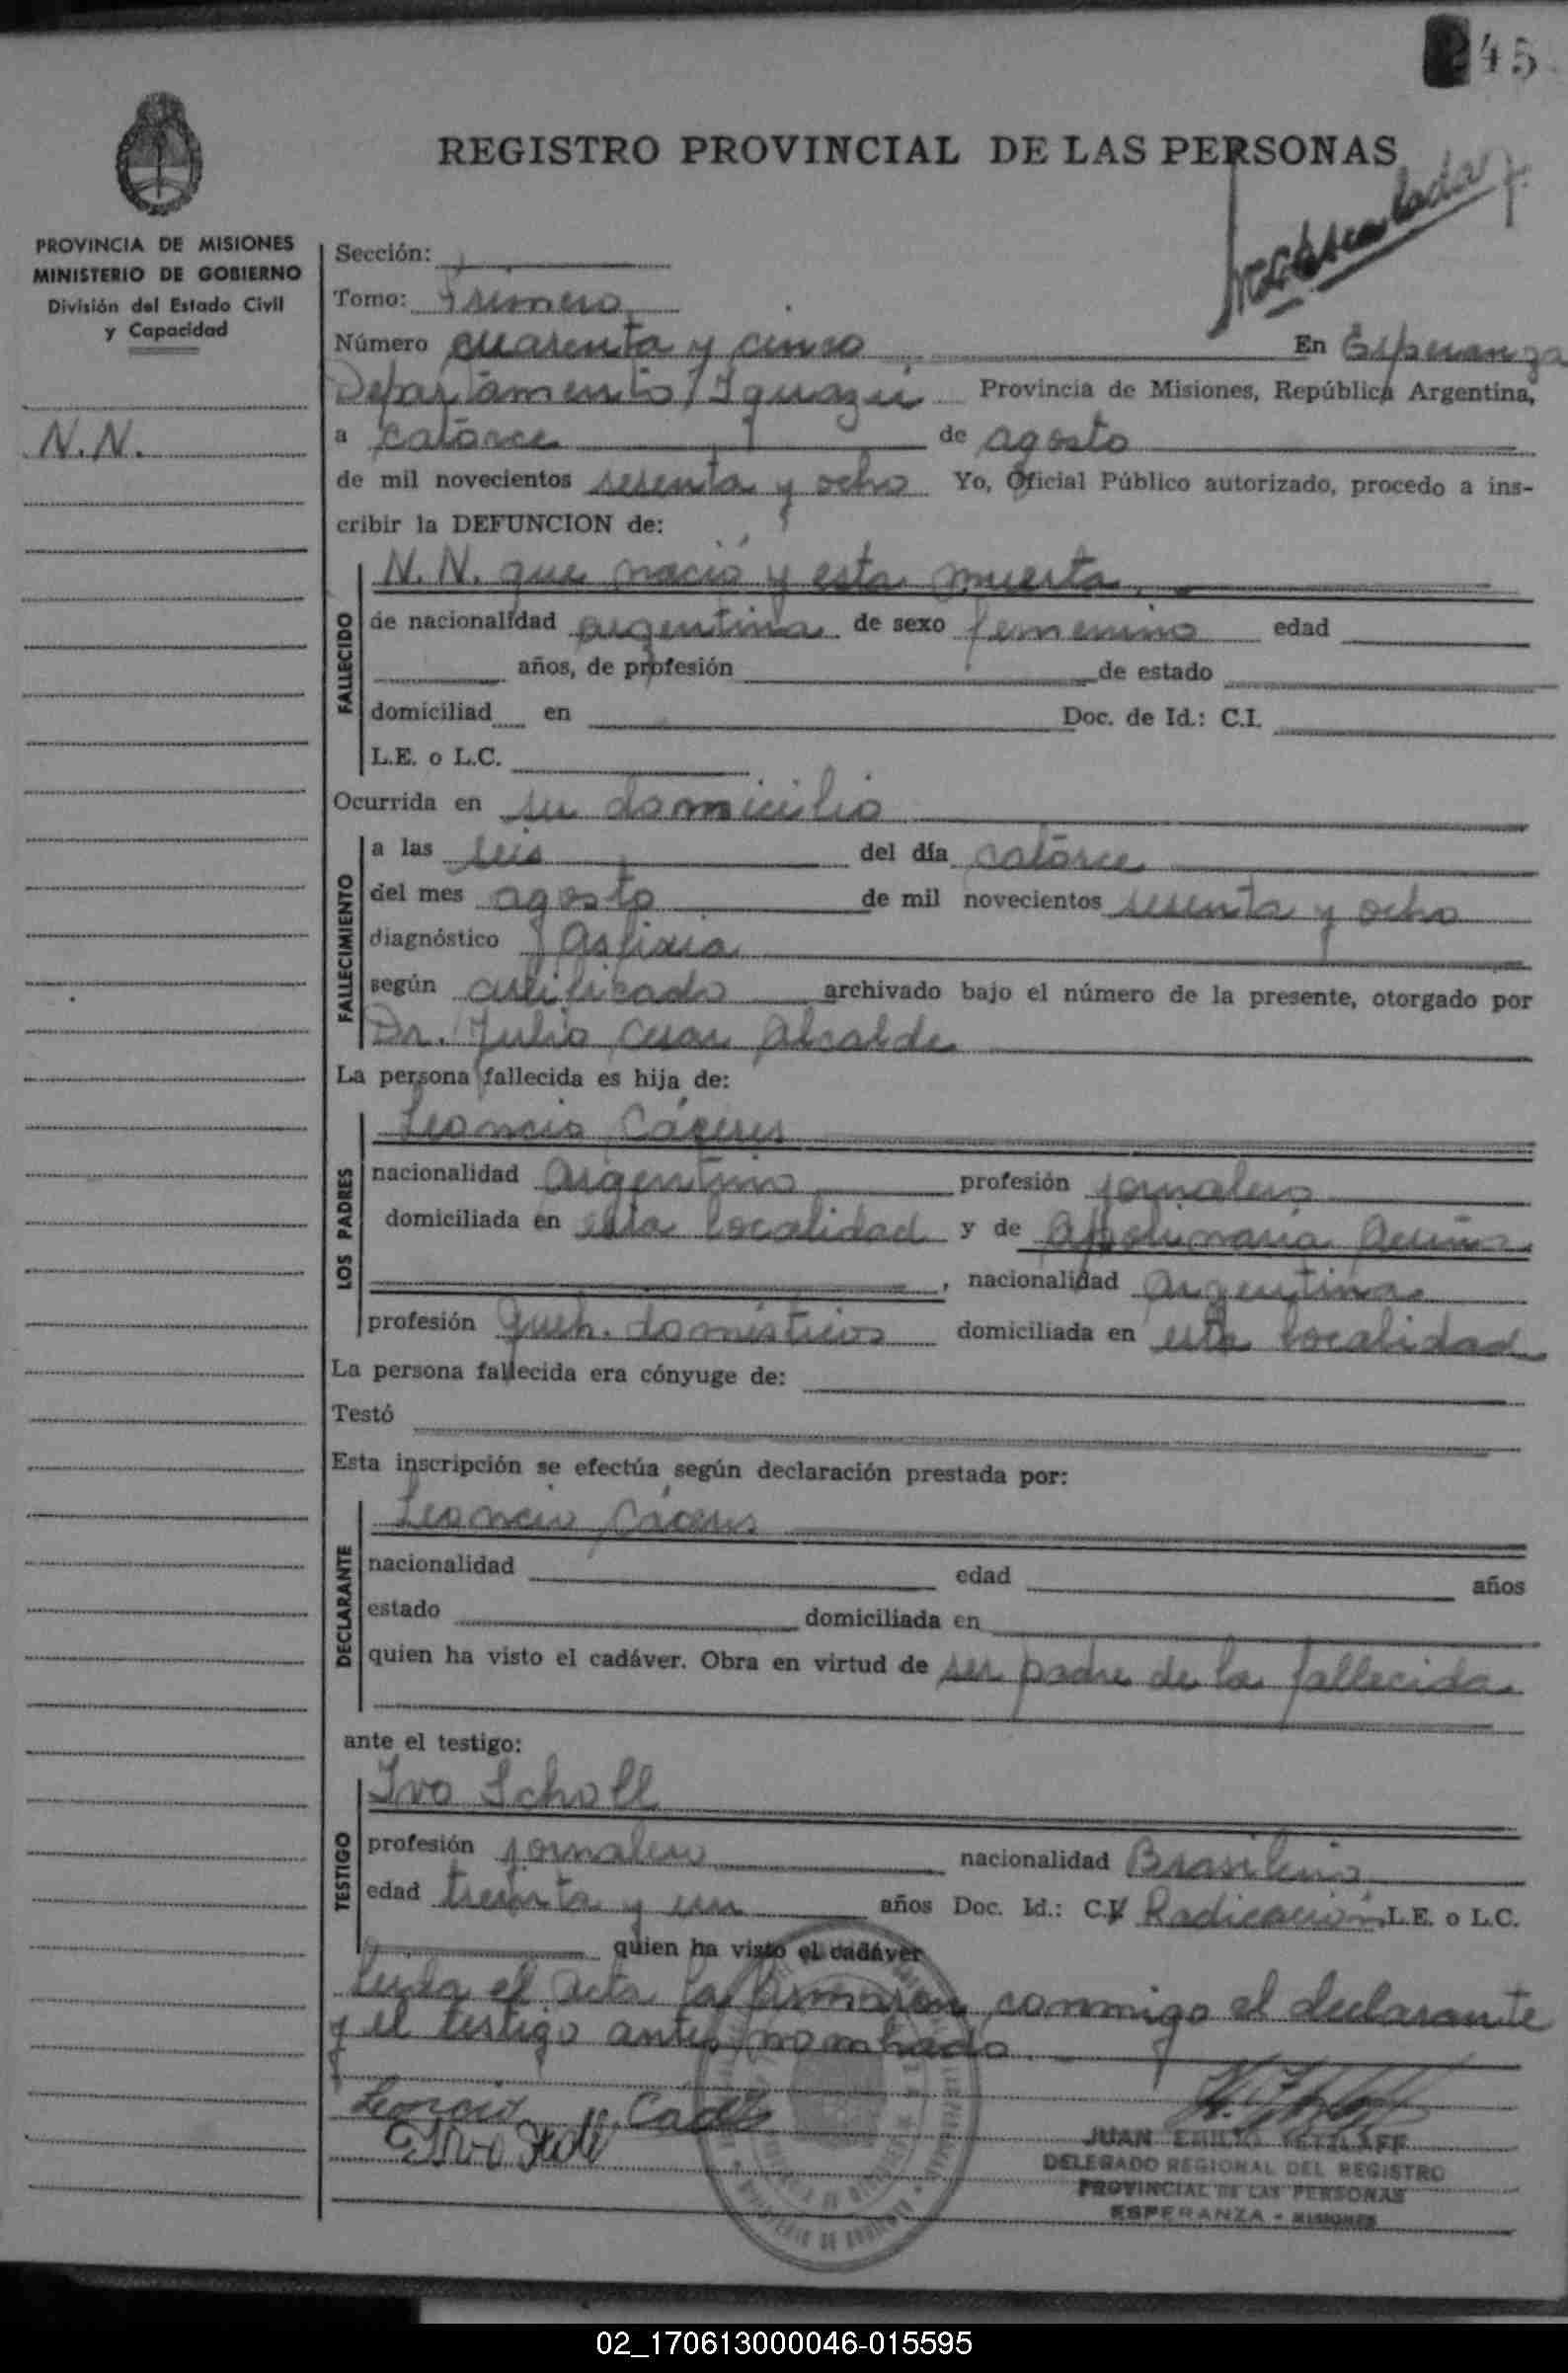 45
REGISTRO PROVINCIAL DE LAS PERSONAS
PROVINCIA DE MISIONES
MINISTERIO DE GOBIERNO
División del Estado Civil
y Capacidad
N.N.
Sección:
Tomo: Primero
Número cuarenta y cinco En Esperanza
Departamento Iguazú Provincia de Misiones, República Argentina,
a catorce de agosto
de mil novecientos sesenta y ocho Yo, Oficial Público autorizado, procedo a ins-
cribir la DEFUNCION de:
FALLECIDO
N.N. que nació y esta muerta
de nacionalidad argentina de sexo femenino edad
años, de profesión de estado
domiciliad en Doc. de Id.: C.I.
L.E. o L.C.
Ocurrida en su domicilio
FALLECIMIENTO
a las seis del día catorce
del mes agosto de mil novecientos sesenta y ocho
diagnóstico Asfixia
según certificado archivado bajo el número de la presente, otorgado por
Dr. Julio Cesar Alcalde
La persona fallecida es hija de:
LOS PADRES
Leoncio Cáceres
nacionalidad Argentino profesión jornalero
domiciliada en esta localidad y de Apolinaria
, nacionalidad Argentina
profesión Queh. domésticos domiciliada en esta localidad
La persona fallecida era cónyuge de:
Testó
Esta inscripción se efectúa según declaración prestada por:
DECLARANTE
Leoncio Cáceres
nacionalidad edad años
estado domiciliada en
quien ha visto el cadáver. Obra en virtud de ser padre de la fallecida
ante el testigo:
TESTIGO
Ivo Scholl
profesión jornalero nacionalidad Brasileño
edad treinta y un años Doc. Id.: C.I. Radicación L.E. o L.C.
quien ha visto el cadáver
Leida el acta la firmaron conmigo el declarante
y el testigo antes nombrado
Leoncio
JUAN EMILIO
DELEGADO REGIONAL DEL REGISTRO
PROVINCIAL DE LAS PERSONAS
ESPERANZA - MISIONES
02_170613000046-015595